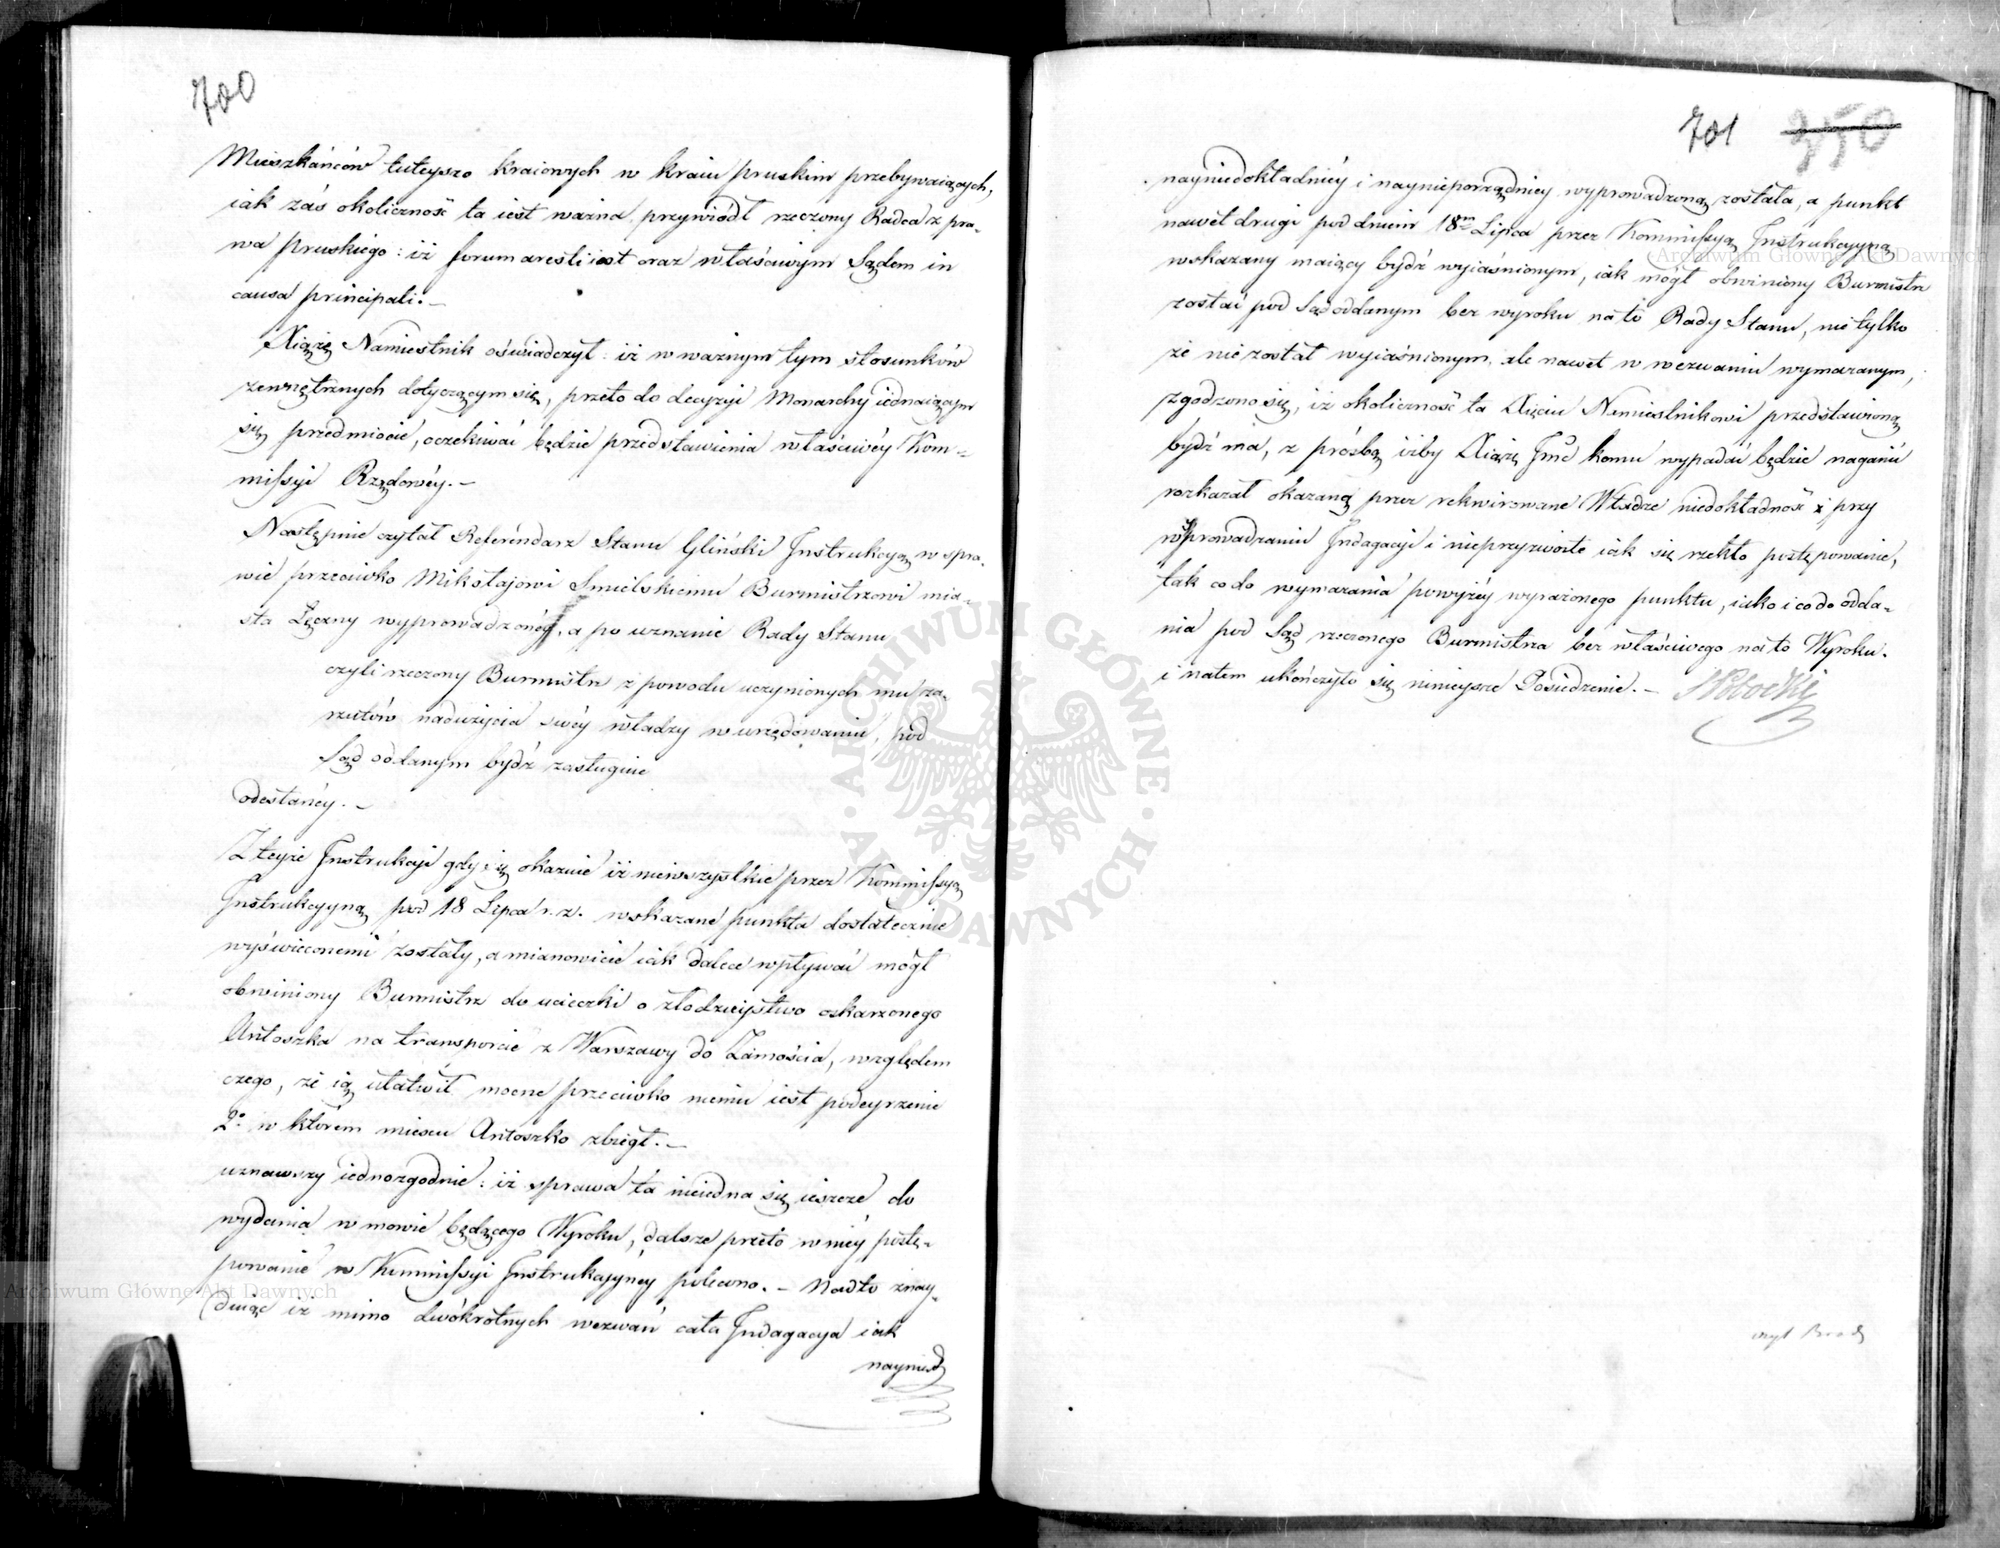 700
Mieszkańców tuteyszo kraiowych w kraiu pruskim przebywaiących,
iak zaś okoliczność ta iest ważna, przywiódł rzeczony Radca z pra-
wa pruskiego: iż forum aresti iest oraz właściwym Sądem in
causa principali. –
Xiążę Namiestnik oświadczył: iż w ważnym tym stosunków
zewnętrznych dotyczącym się, przeto do decyzyi Monarchy iednaiącym
się przedmiocie, oczekiwać będzie przedstawienia właściwéy Kom-
missyi Rządowéy. –
Następnie czytał Referéndarz Stanu Gliński Instrukcyą w spra-
wie przeciwko Mikołajowi Smielskiemu Burmistrzowi mia-
sta Łęczny wyprowadzonéy, a po uznanie Rady Stanu
czyli rzeczony Burmistrz z powodu uczynionych mu za-
rzutów nadużycia swéy władzy w urzędowaniu, pod
Sąd oddanym bydź zasługuie
odesłanéy. –
Z teyże Instrukcji gdy się okazuie iż niewszystkie przez Kommissyą
Instrukcyyną pod 18 Lipca r. z. wskazane punkta dostatecznie
wyświeconemi zostały, a mianowicie iak dalece wpływać mógł
obwiniony Burmistrz do ucieczki o złodzieystwo oskarżonego
Antoszka na transporcie z Warszawy do Zamościa, względem
czego, że ią ułatwił mocne przeciwko niemu iest podeyrzenie
2° w którem miescu Antoszko zbiegł. –
uznawszy iednozgodnie: iż sprawa ta nieiedna się ieszcze do
wydania w mowie będącego Wyroku, dalsze przeto w niéy postę-
powanie w Kommissyi Instrukcyynéy polecono. – Nadto znay-
duiąc iż mimo dwókrotnych wezwań cała Indagacya iak
naynied
701 350
nayniedokładniéy i naynieporządniey wyprowadzoną została, a punkt
nawet drugi pod dniem 18m Lipca przez Kommissyą Instrukcyyną
wskazany maiący bydź wyiaśnionym, iak mógł obwiniony Burmistrz
zostać pod Sąd oddanym bez wyroku na to Rady Stanu, nie tylko
że nie został wyiaśnionym, ale nawet w wezwaniu wymazanym,
zgodzono się, iż okoliczność ta Xięciu Namiestnikowi przedstawioną
bydź ma, z prośbą iżby Xiążę Jmć komu wypadać będzie naganić
rozkazał okazaną przez rekwirowane Władze niedokładność i przy
wprowadzaniu Indagacyi i nieprzyzwoite iak się rzekło postępowanie,
tak co do wymazania powyżéy wyrażonego punktu, iako i co do odda-
nia pod Sąd rzeczonego Burmistrza bez właściwego na to Wyroku.
i na tem ukończyło się ninieysze Posiedzenie. – S Potocki
Archiwum Główne Akt Dawnych
ARCHIWUM GŁÓWNE AKT DAWNYCH
Archiwum Główne Akt Dawnych